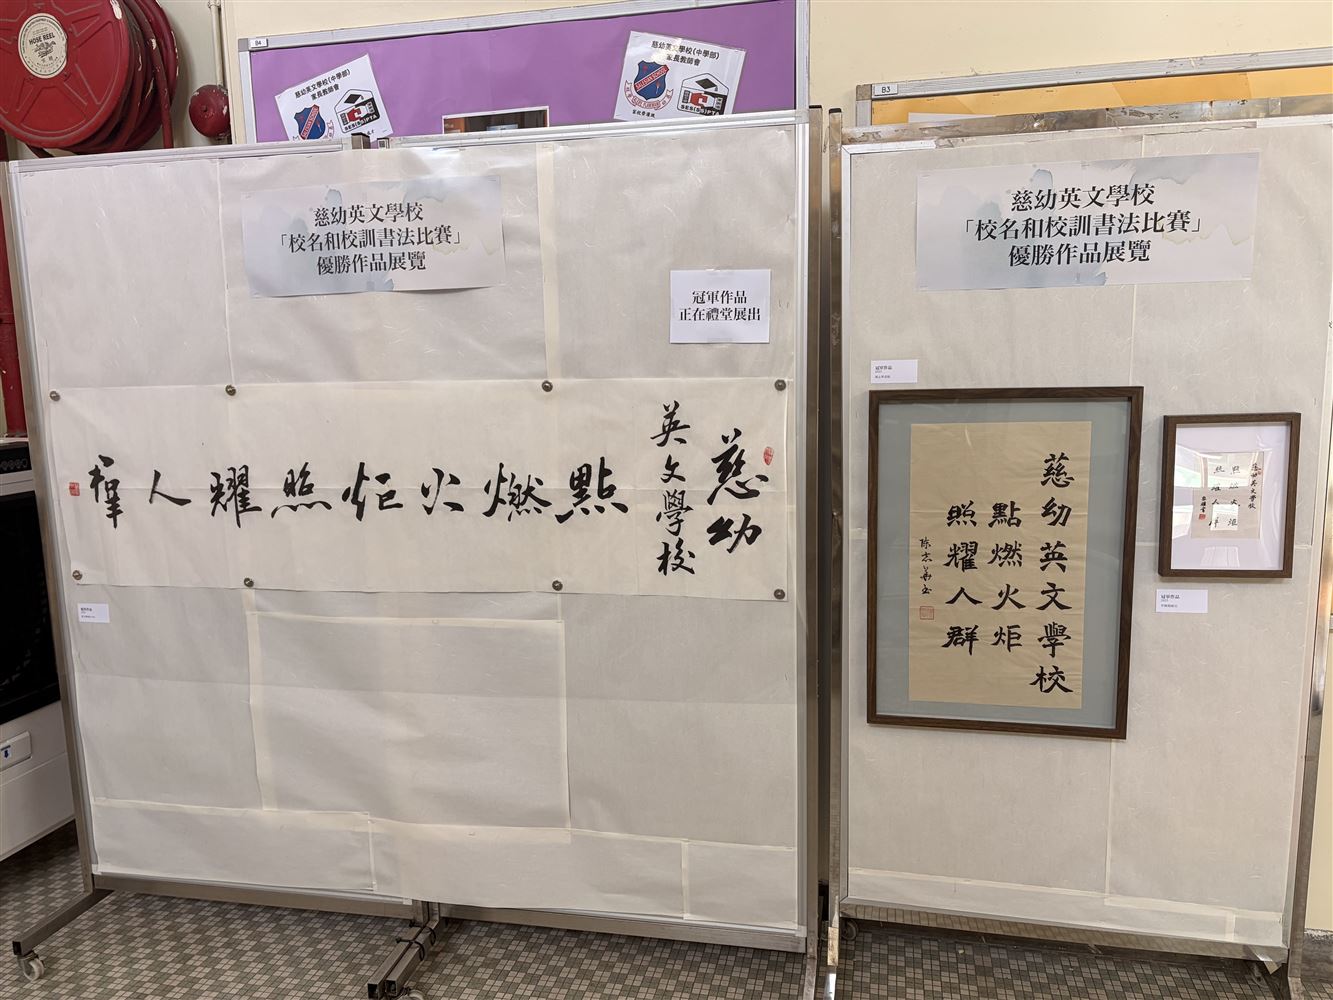 HOSE REEL
B4
慈幼英文學校(中學部)
家長教師會
慈幼英文學校(中學部)
家長教師會
SES(SS)PTA
家校齊灌溉
B3
慈幼英文學校
「校名和校訓書法比賽」
優勝作品展覽
冠軍作品
正在禮堂展出
慈幼
英文學校
點燃火炬照耀人羣
慈幼英文學校
「校名和校訓書法比賽」
優勝作品展覽
冠軍作品
慈幼英文學校
點燃火炬
照耀人群
冠軍作品